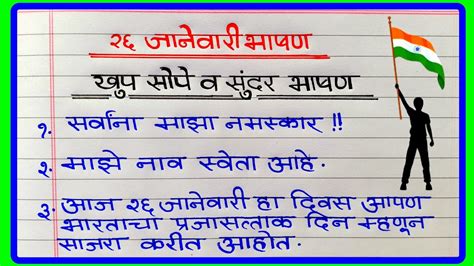 २६ जानेवारी भाषण
खुप सोपे व सुंदर भाषण
१. सर्वांना माझा नमस्कार !!
२. माझे नाव स्वेता आहे.
३. आज २६ जानेवारी हा दिवस आपण
भारताचा प्रजासत्ताक दिन म्हणून
साजरा करीत आहोत.